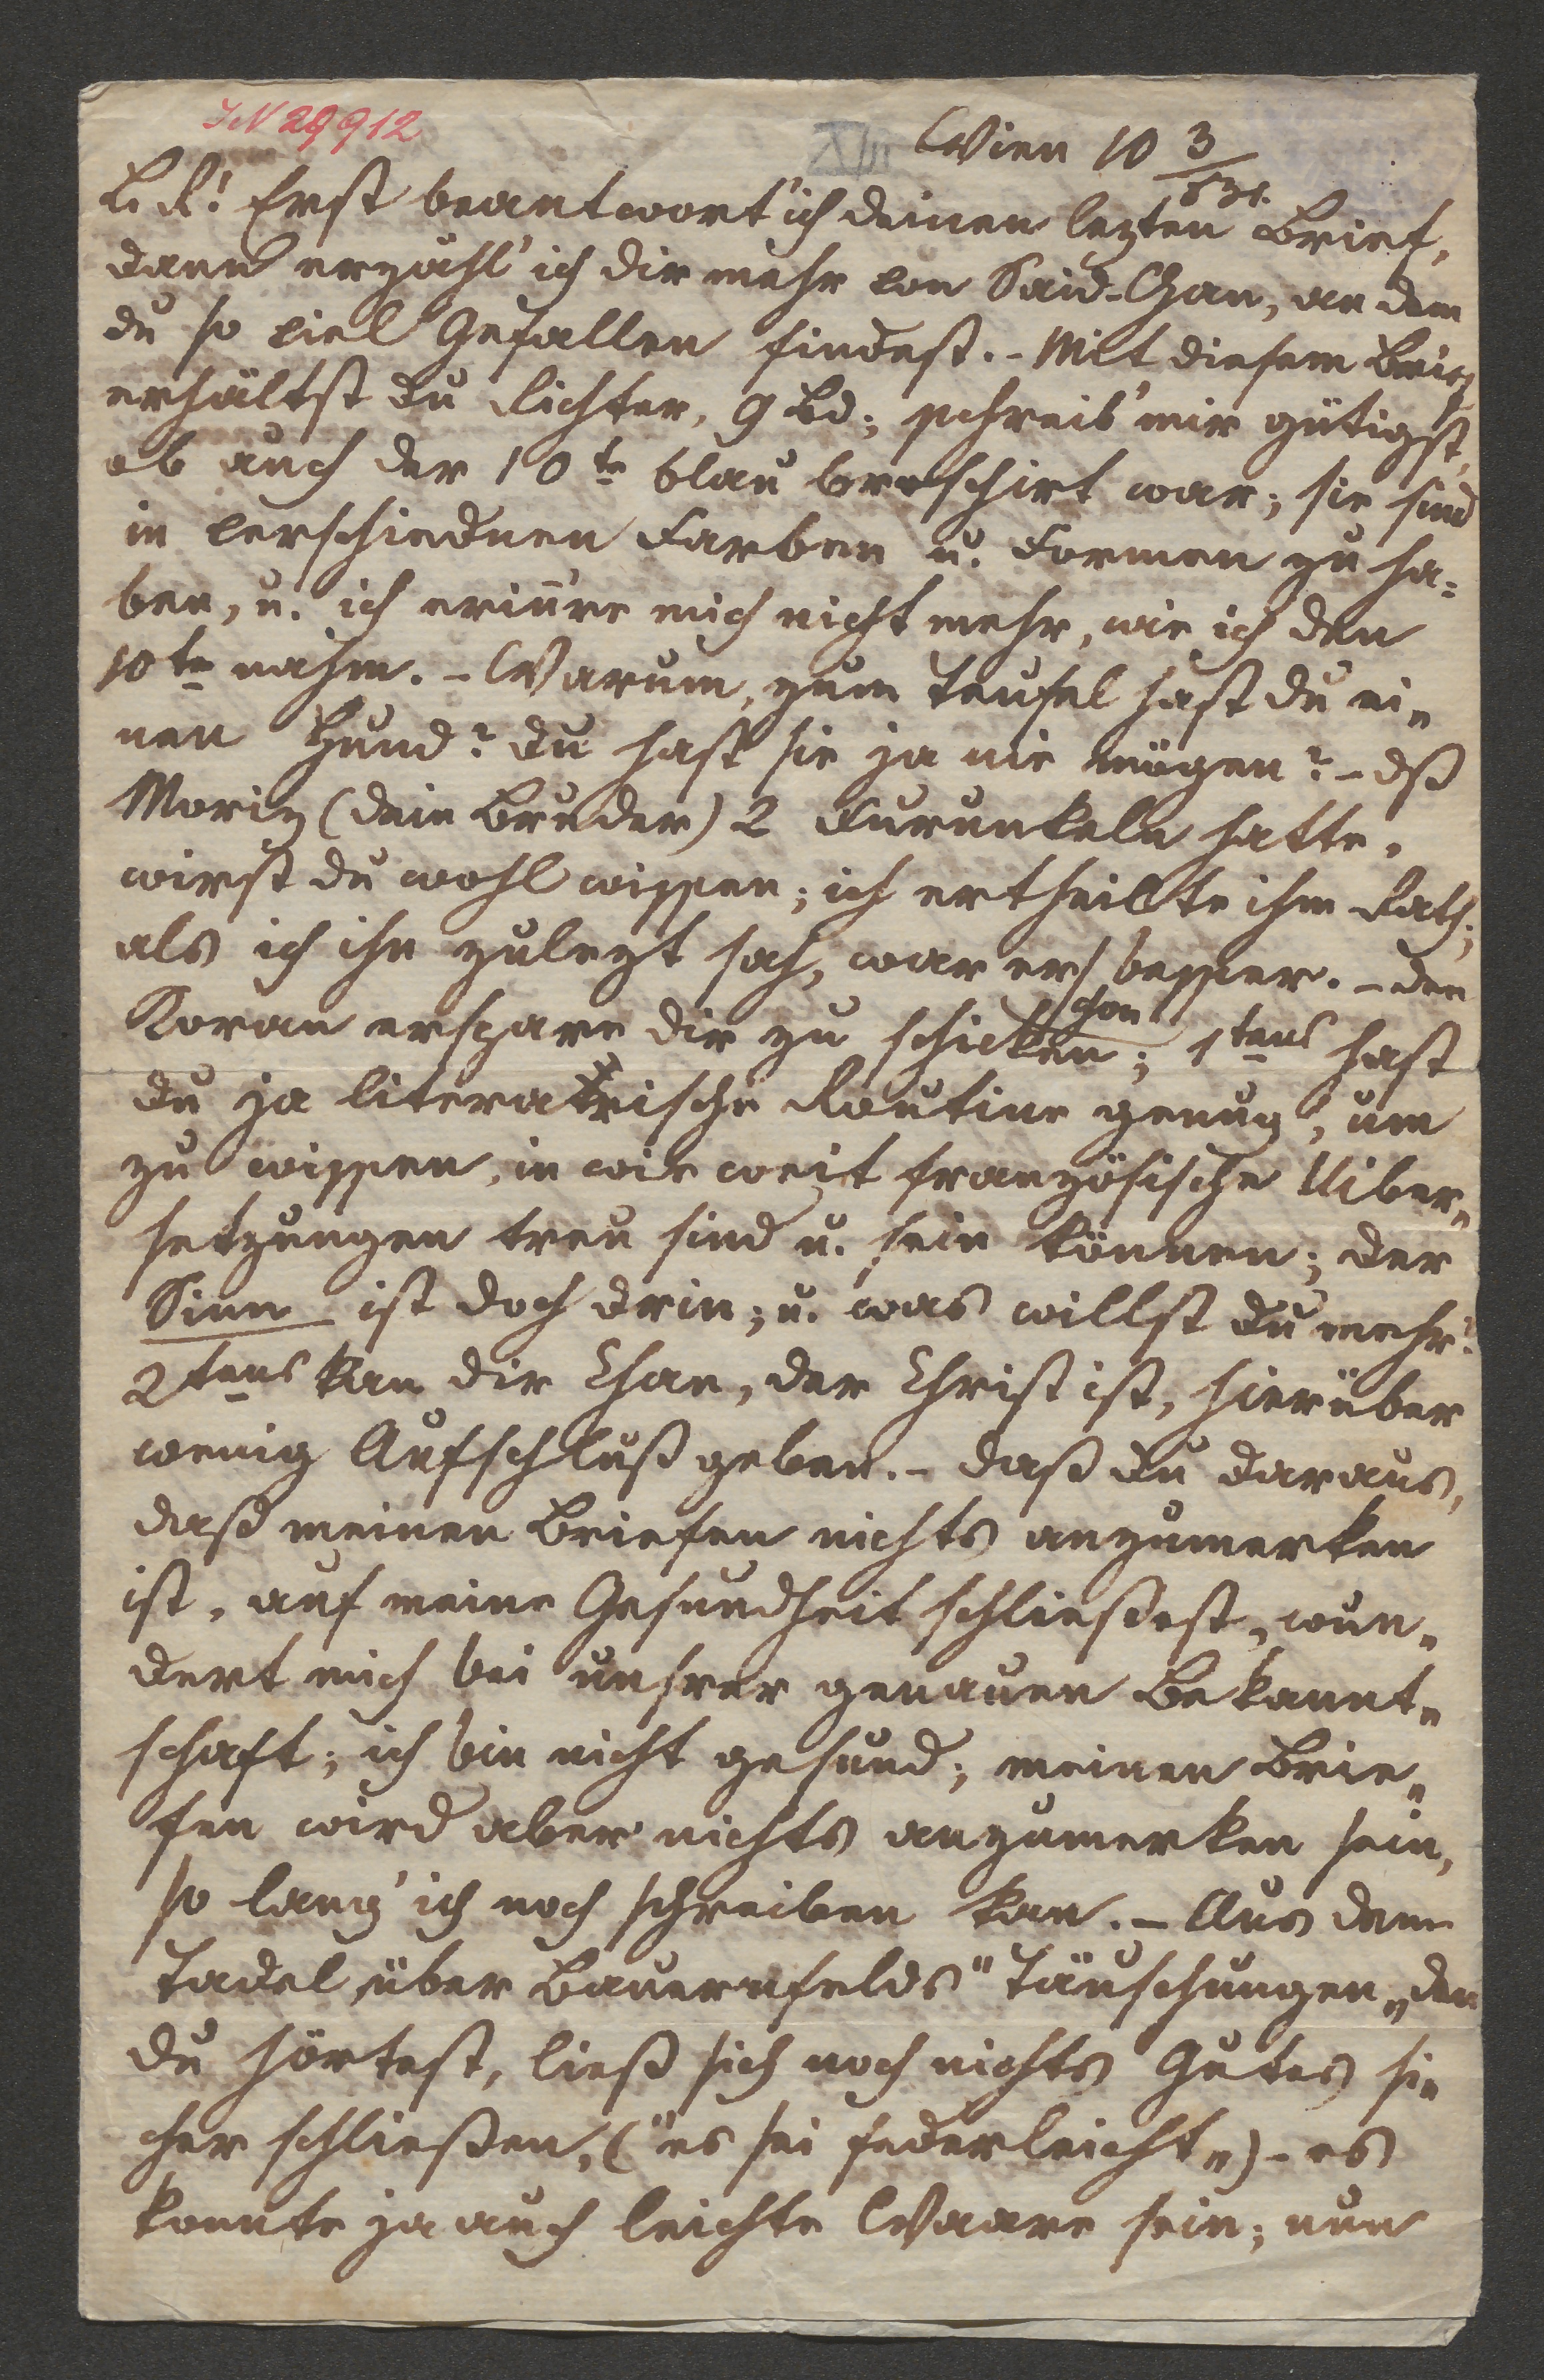 IN 29912
XIII
Wien 10 3/831.
L. K! Erst beantwort' ich deinen lezten Brief,
dann erzähl' ich dir mehr von Said-Chan, an dem
du so viel Gefallen findest. – Mit diesem Brief
erhältst du Richter, 9 Bd; schreib' mir gütigst,
ob auch der 10te blau broschirt war; sie sind
in verschiednen Farben u. Formen zu ha-
ben, u. ich eriñre mich nicht mehr, wie ich den
10te nahm. – Warum, zum Teufel hast du ei-
nen Hund? Du hast sie ja nie mögen? – dß
Moriz (dein Bruder) 2 Furunkeln hatte,
wirst du wohl wissen; ich ertheilte ihm Rath;
als ich ihn zulezt sah, war er schon besser. – Den
Koran erspare dir zu schicken; 1tens hast
du ja literarische Routine genug, um
zu wissen, in wie weit französische Uiber-
setzungen treu sind u. sein können; der
Sinn ist doch drin; u. was willst du mehr?
2tens kan dir Chan, der Christ ist, hierüber
wenig Aufschluß geben. – Daß du daraus,
daß meinen Briefen nichts anzumerken
ist, auf meine Gesundheit schließest, wun-
dert mich bei unsrer genauen Bekannt-
schaft; ich bin nicht gesund; meinen Brie-
fen wird aber nichts anzumerken sein,
so lang' ich noch schreiben kan. – Aus dem
Tadel über Bauernfelds "Täuschungen„ den
du hörtest, ließ sich noch nichts Gutes si-
cher schließen, ("es sei federleicht„) – es
konnte ja auch leichte Waare sein; nun